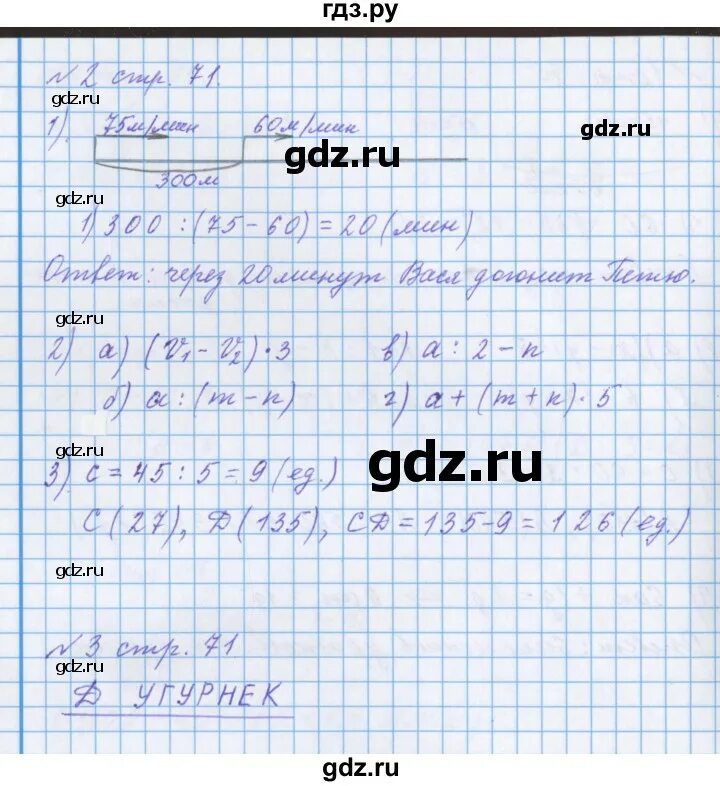 гдз.ру
№2 стр. 71.
gdz.ru
1). 75м/мин 60м/мин
gdz.ru
gdz.ru
300м
gdz.ru
1) 300 : (75-60) = 20 (мин)
Ответ: через 20 минут Вася догонит Петю.
gdz.ru
2) а) (V₁ - V₂) · 3 в) а : 2 - n
б) а : (m - n) г) а + (m + n) · 5
gdz.ru
gdz.ru
3). с = 45 : 5 = 9 (ед.)
С (27), Д (135), СД = 135-9 = 126 (ед.)
gdz.ru
№3 стр. 71
gdz.ru
Д УГУРНЕК
gdz.ru